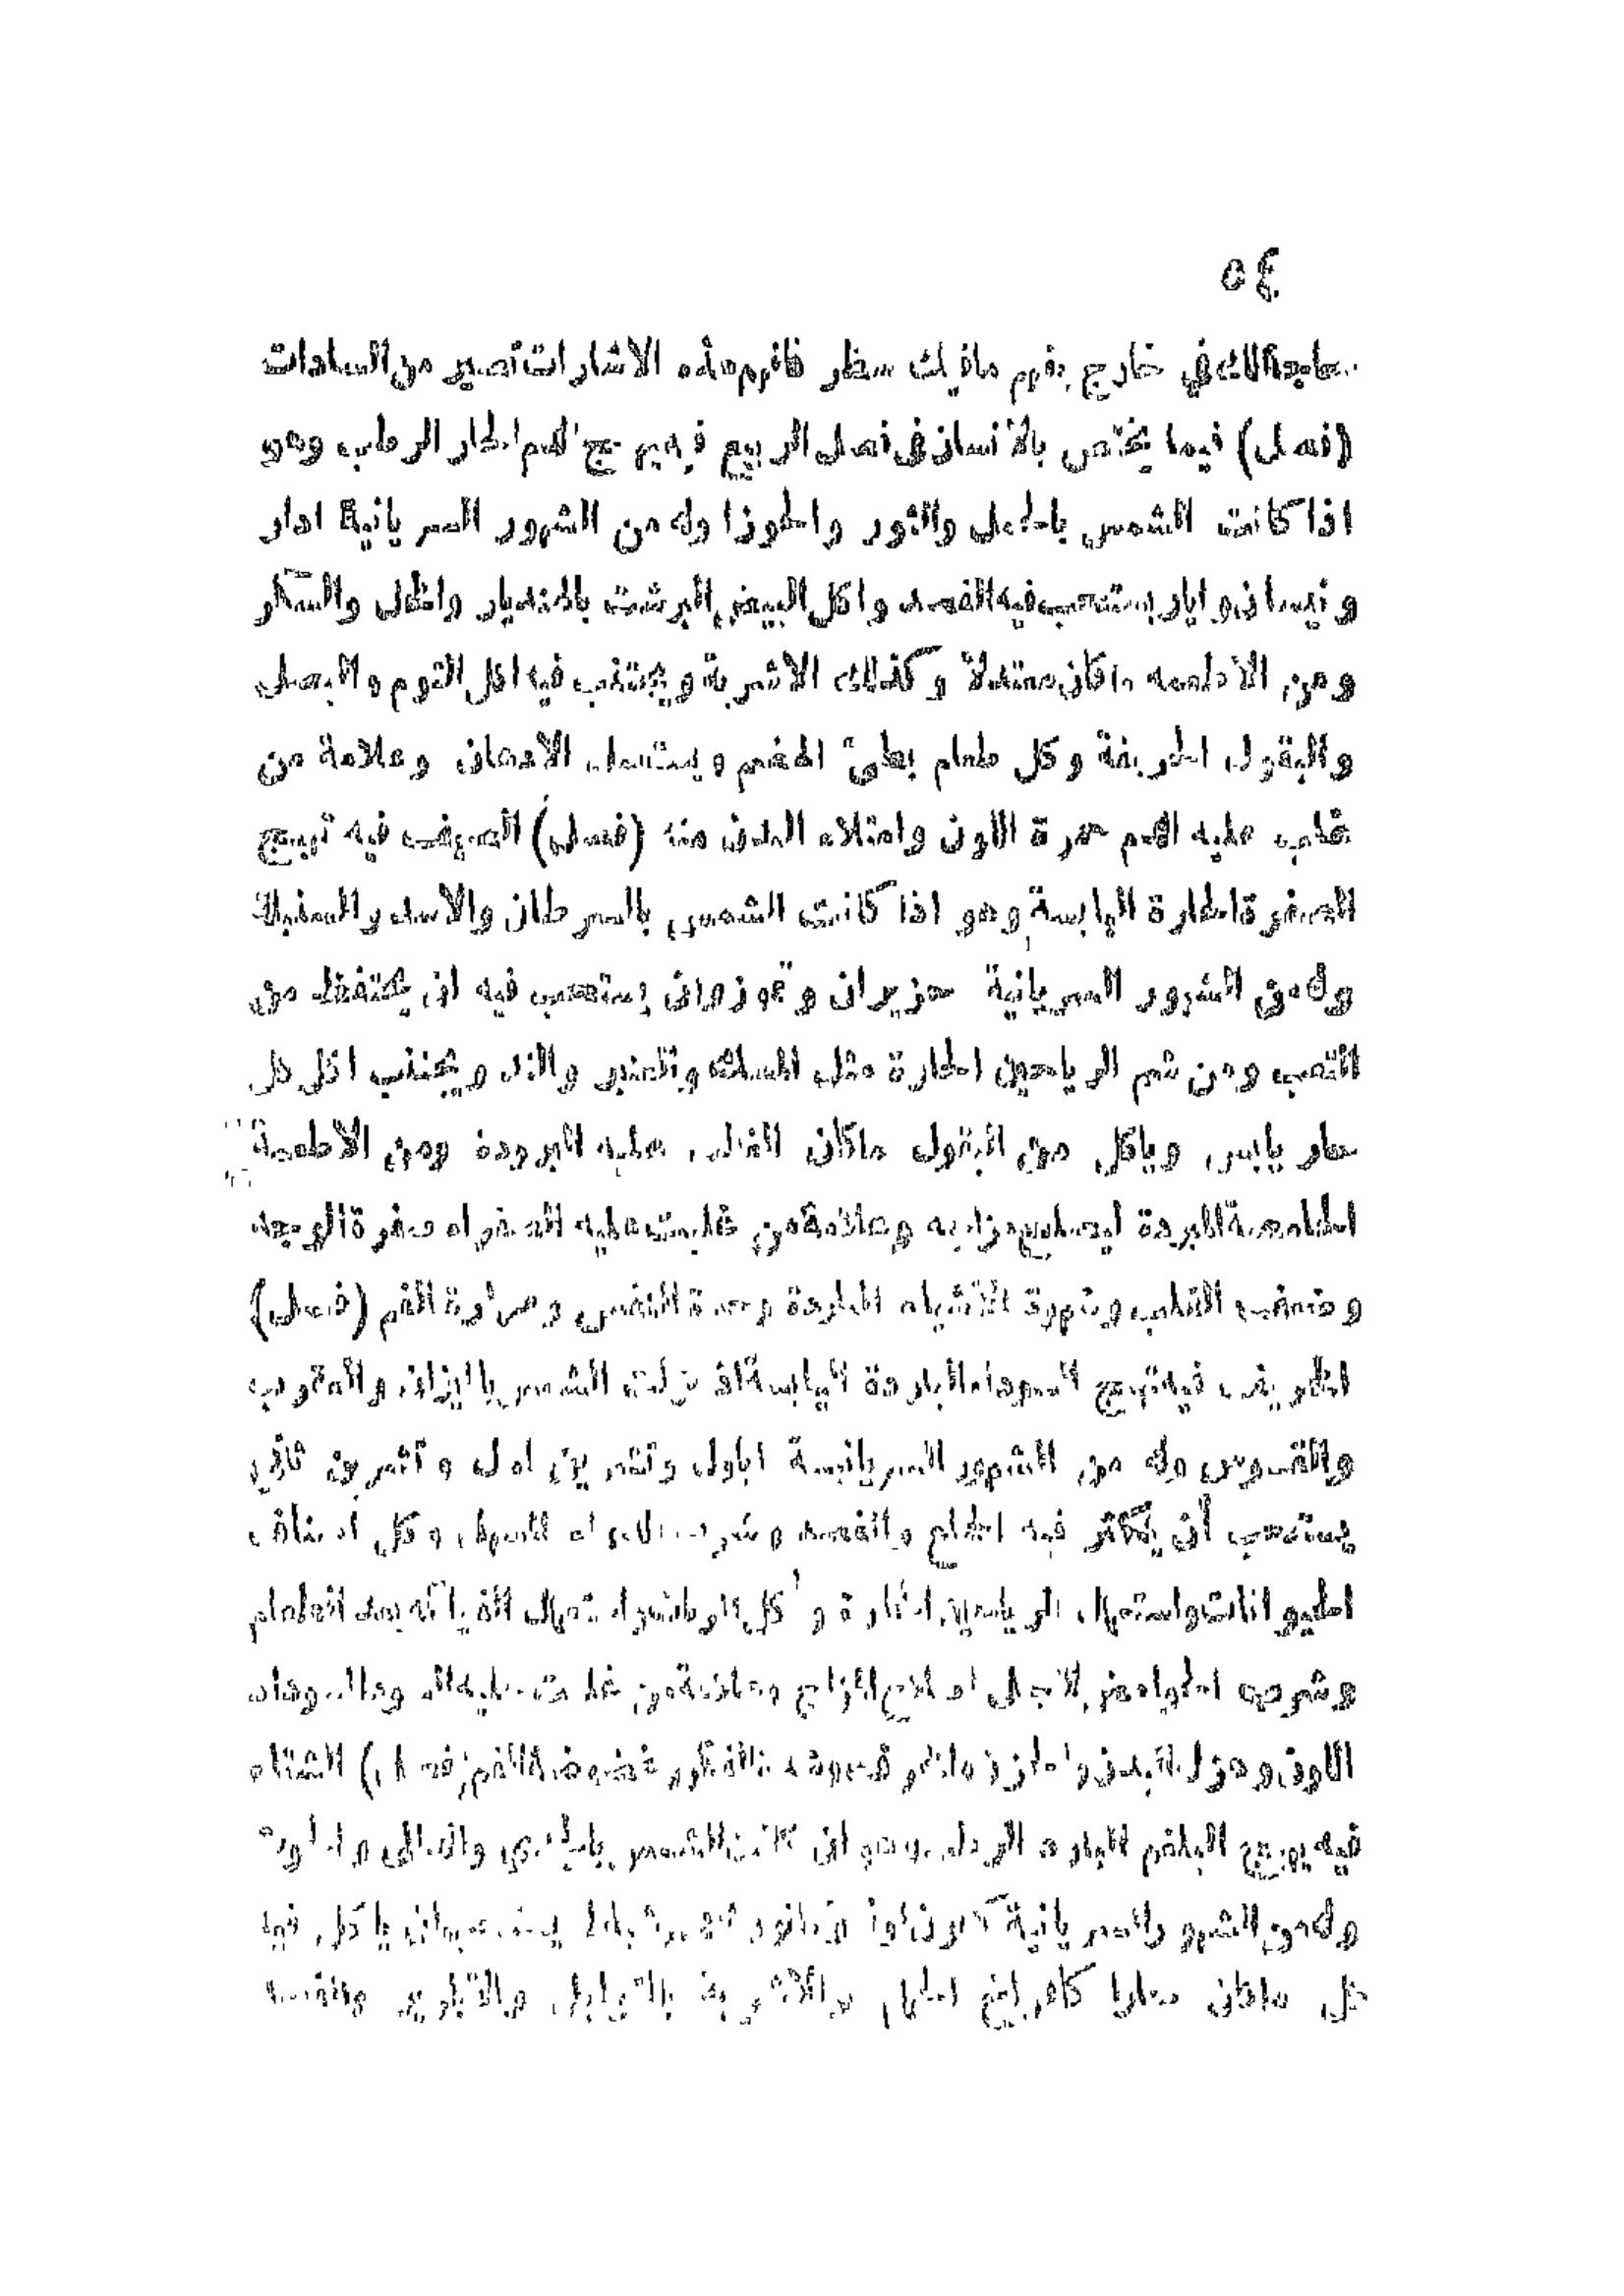 ٥٤
حاجة لك في خارج يفهم مافيك سطر فافهم هذه الاشارات تصير من السادات
(فصل) فيما يختص بالانسان فى فصل الربيع فيهيج الدم الحار الرطب وهو
اذا كانت الشمس بالحمل والثور والجوزا وله من الشهور السريانية ادار
ونيسان وايار يستحب فيه الفصد واكل البيض البرشت بالخيار والخل والسكر
ومن الاطعمه ماكان معتدلا وكذلك الاشربة ويجتنب فيه اكل الثوم والبصل
والبقول الحريفة وكل طعام بطئ الهضم ويستعمل الادهان وعلامة من
غلب عليه الدم حمرة اللون وامتلاء البدن منه (فصل) الصيف فيه تهيج
الصفرة الحارة اليابسة وهو اذا كانت الشمس بالسرطان والاسد والسنبلة
وله من الشهور السريانية حزيران وتموز واب يستحب فيه ان يحتفظ من
التعب ومن شم الرياحين الحارة مثل المسك والعنبر والند ويجتنب اكل كل
حار يابس وياكل من البقول ماكان الغالب عليه البرودة ومن الاطعمة
الحامضة المبردة ليصلح مزاجه وعلامة من غلبت عليه الصفراء صفرة الوجه
وضعف القلب وشهوة الاشياء الباردة وحدة النفس ومرارة الفم (فصل)
الخريف فيه تهيج السوداء الباردة اليابسة اذ نزلت الشمس بالميزان والعقرب
والقوس وله من الشهور السريانية ايلول وتشرين اول وتشرين ثانى
يستحب أن يكثر فيه الجماع والفصد وشرب الدواء المسهل وكل
الحيوانات واستعمال الرياحين الحارة و بعد الطعام
وشرب لاجل المزاج وعلامة من غلبت عليه
اللون وهزل البدن (فصل) الشتاء
فيه يهيج البلغم البارد الرطب وهو ان كانت الشمس بالجدى والدالى والحوت
وله من الشهور السريانية يستحب ان ياكل فيه
كل ماكان حارا كافراخ الحمام والاشربة بالتوابل والفصد